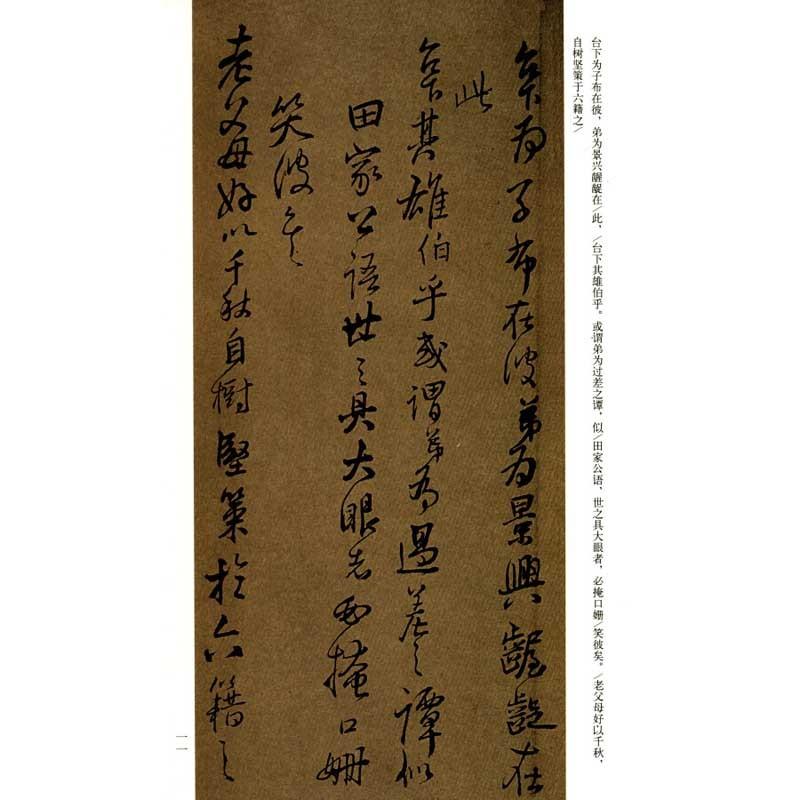 台下为子布在彼，弟为景兴龌龊在/此，/台下其雄伯乎。或谓弟为过差之谭，似/田家公语，世之具大眼者，必掩口姗/笑彼矣。/老父母好以千秋，
自树坚策于六籍之/
台下為子布在彼弟為景興齷齪在
此
台下其雄伯乎或謂弟為過差之譚似
田家公語世之具大眼者必掩口姍
笑彼矣
老父母好以千秋自樹堅策於六籍之
一一